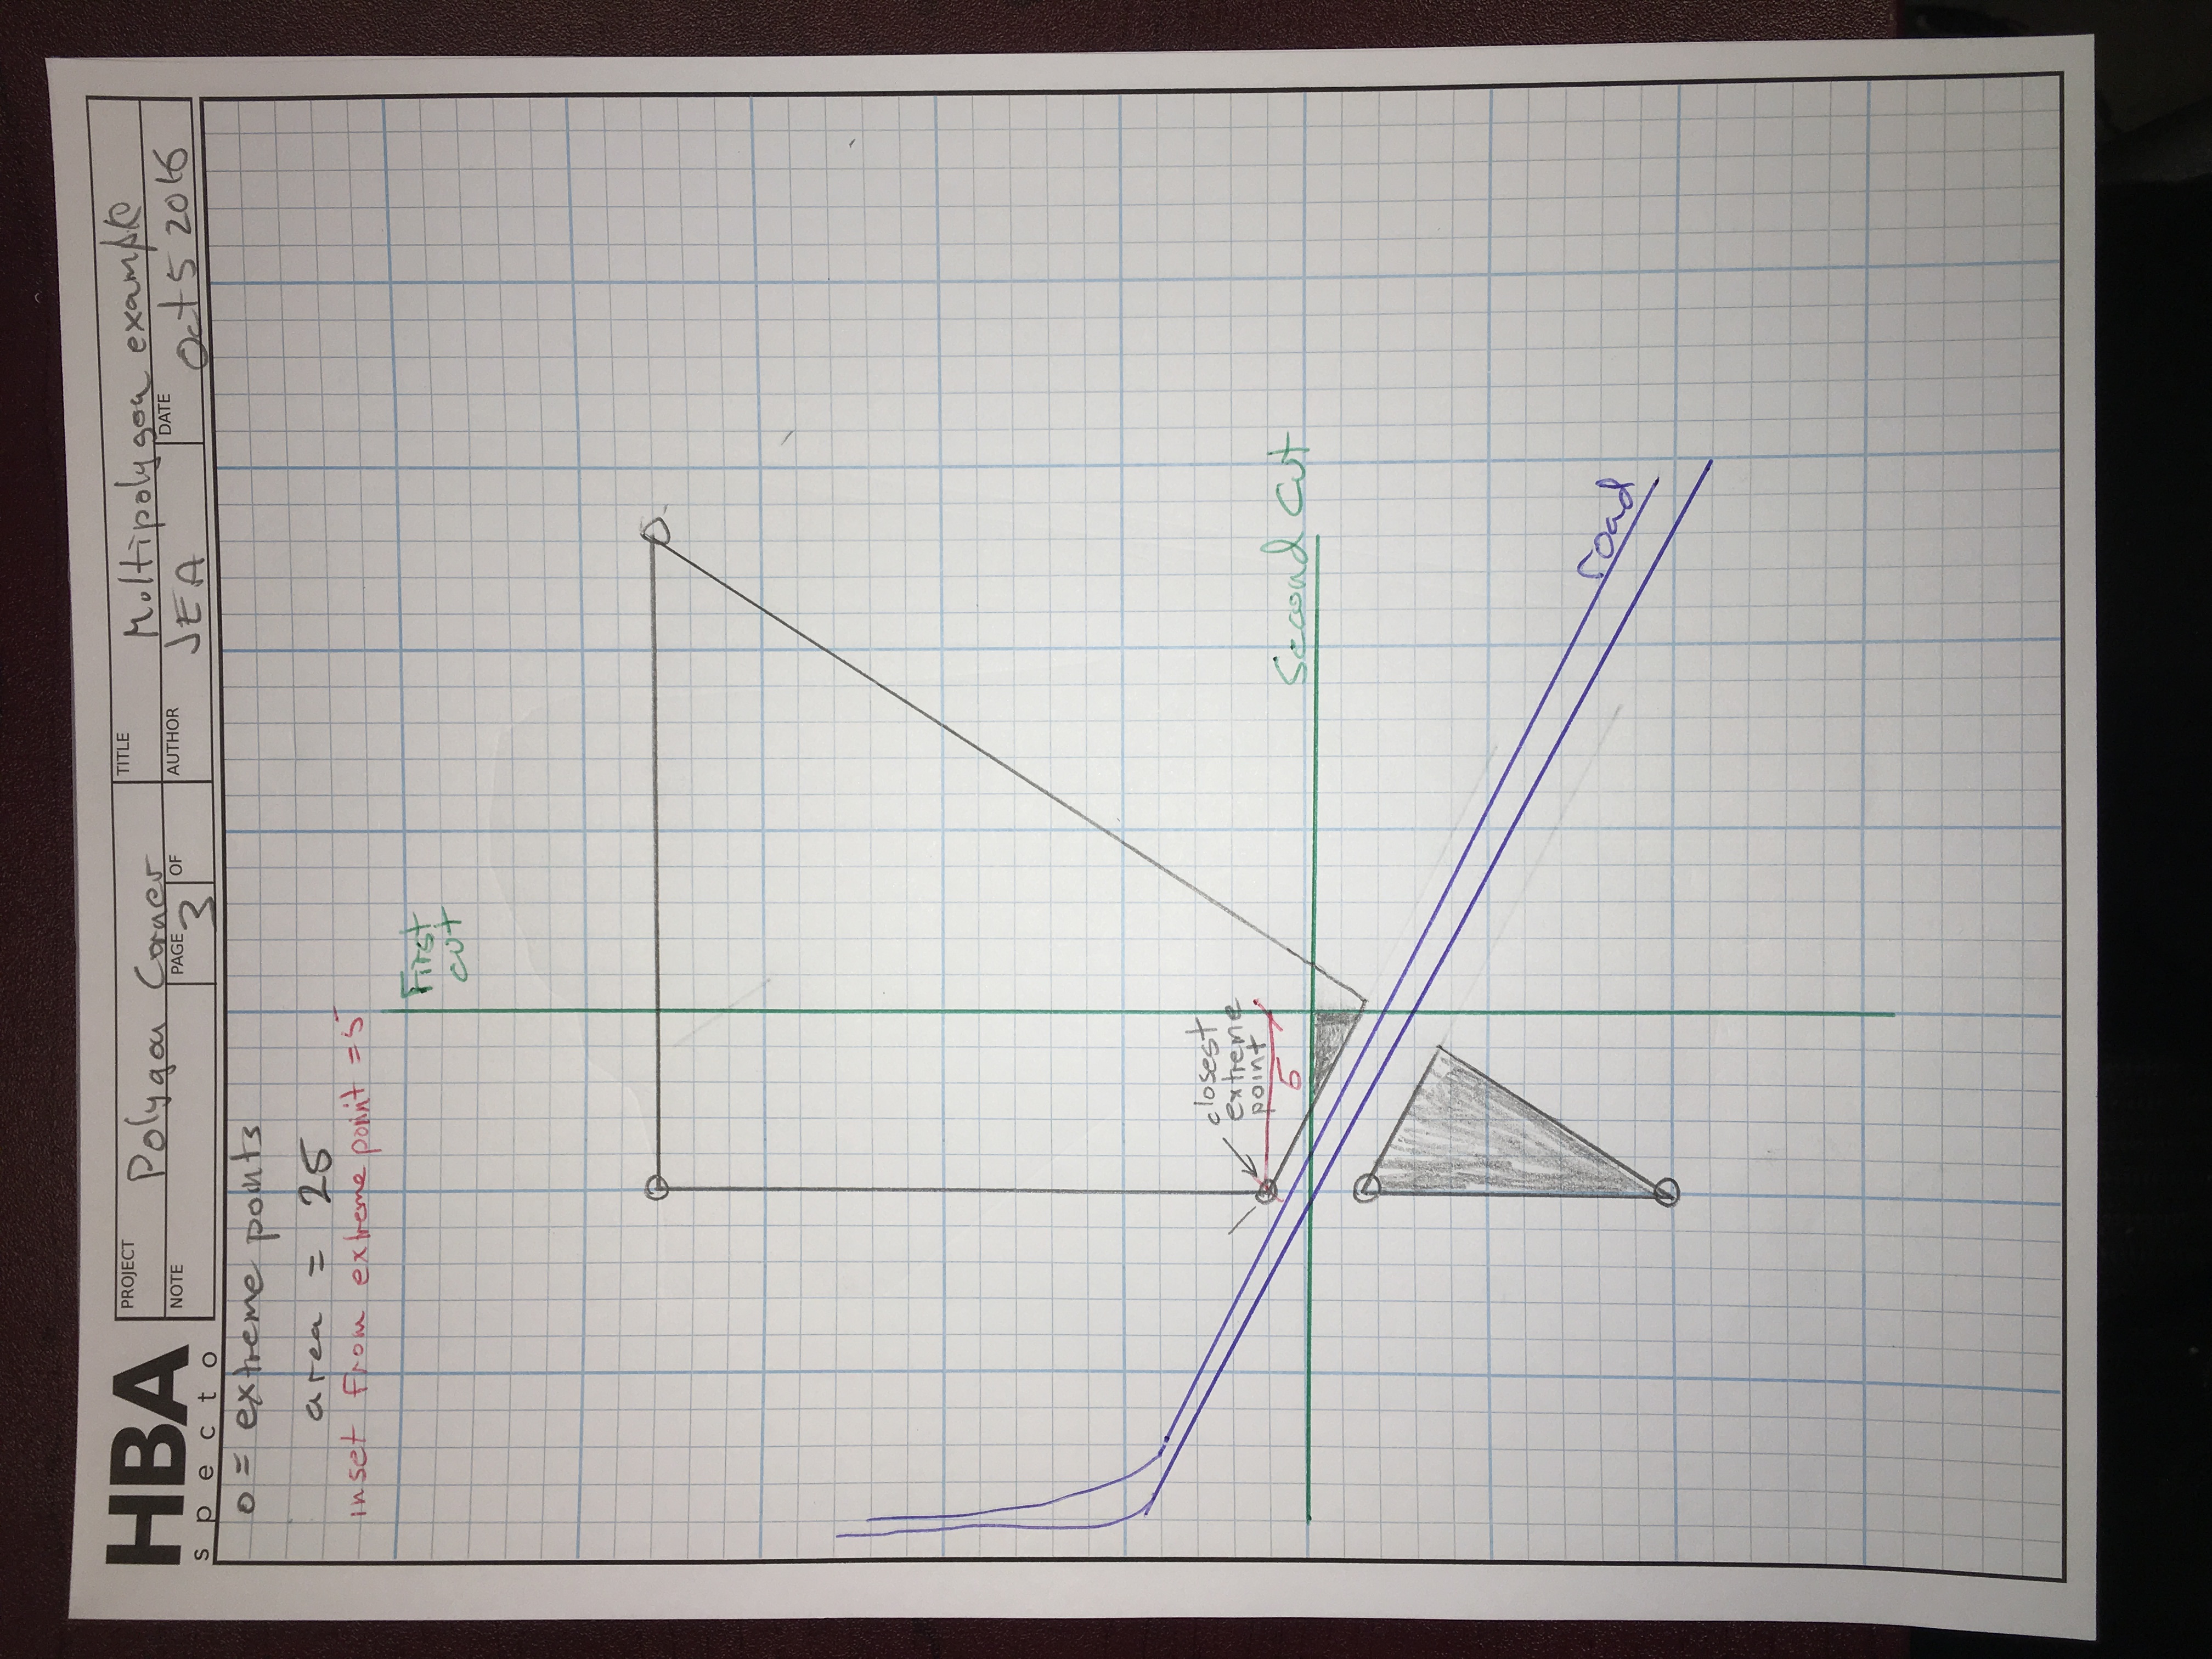 HBA
specto
PROJECT Polygon Corner
TITLE Multipolygon example
NOTE
PAGE 3 OF
AUTHOR JEA
DATE Oct 5 2016
o = extreme points
area = 25
inset from extreme point = 5
First
cut
closest
extreme
point
5
Second Cut
road